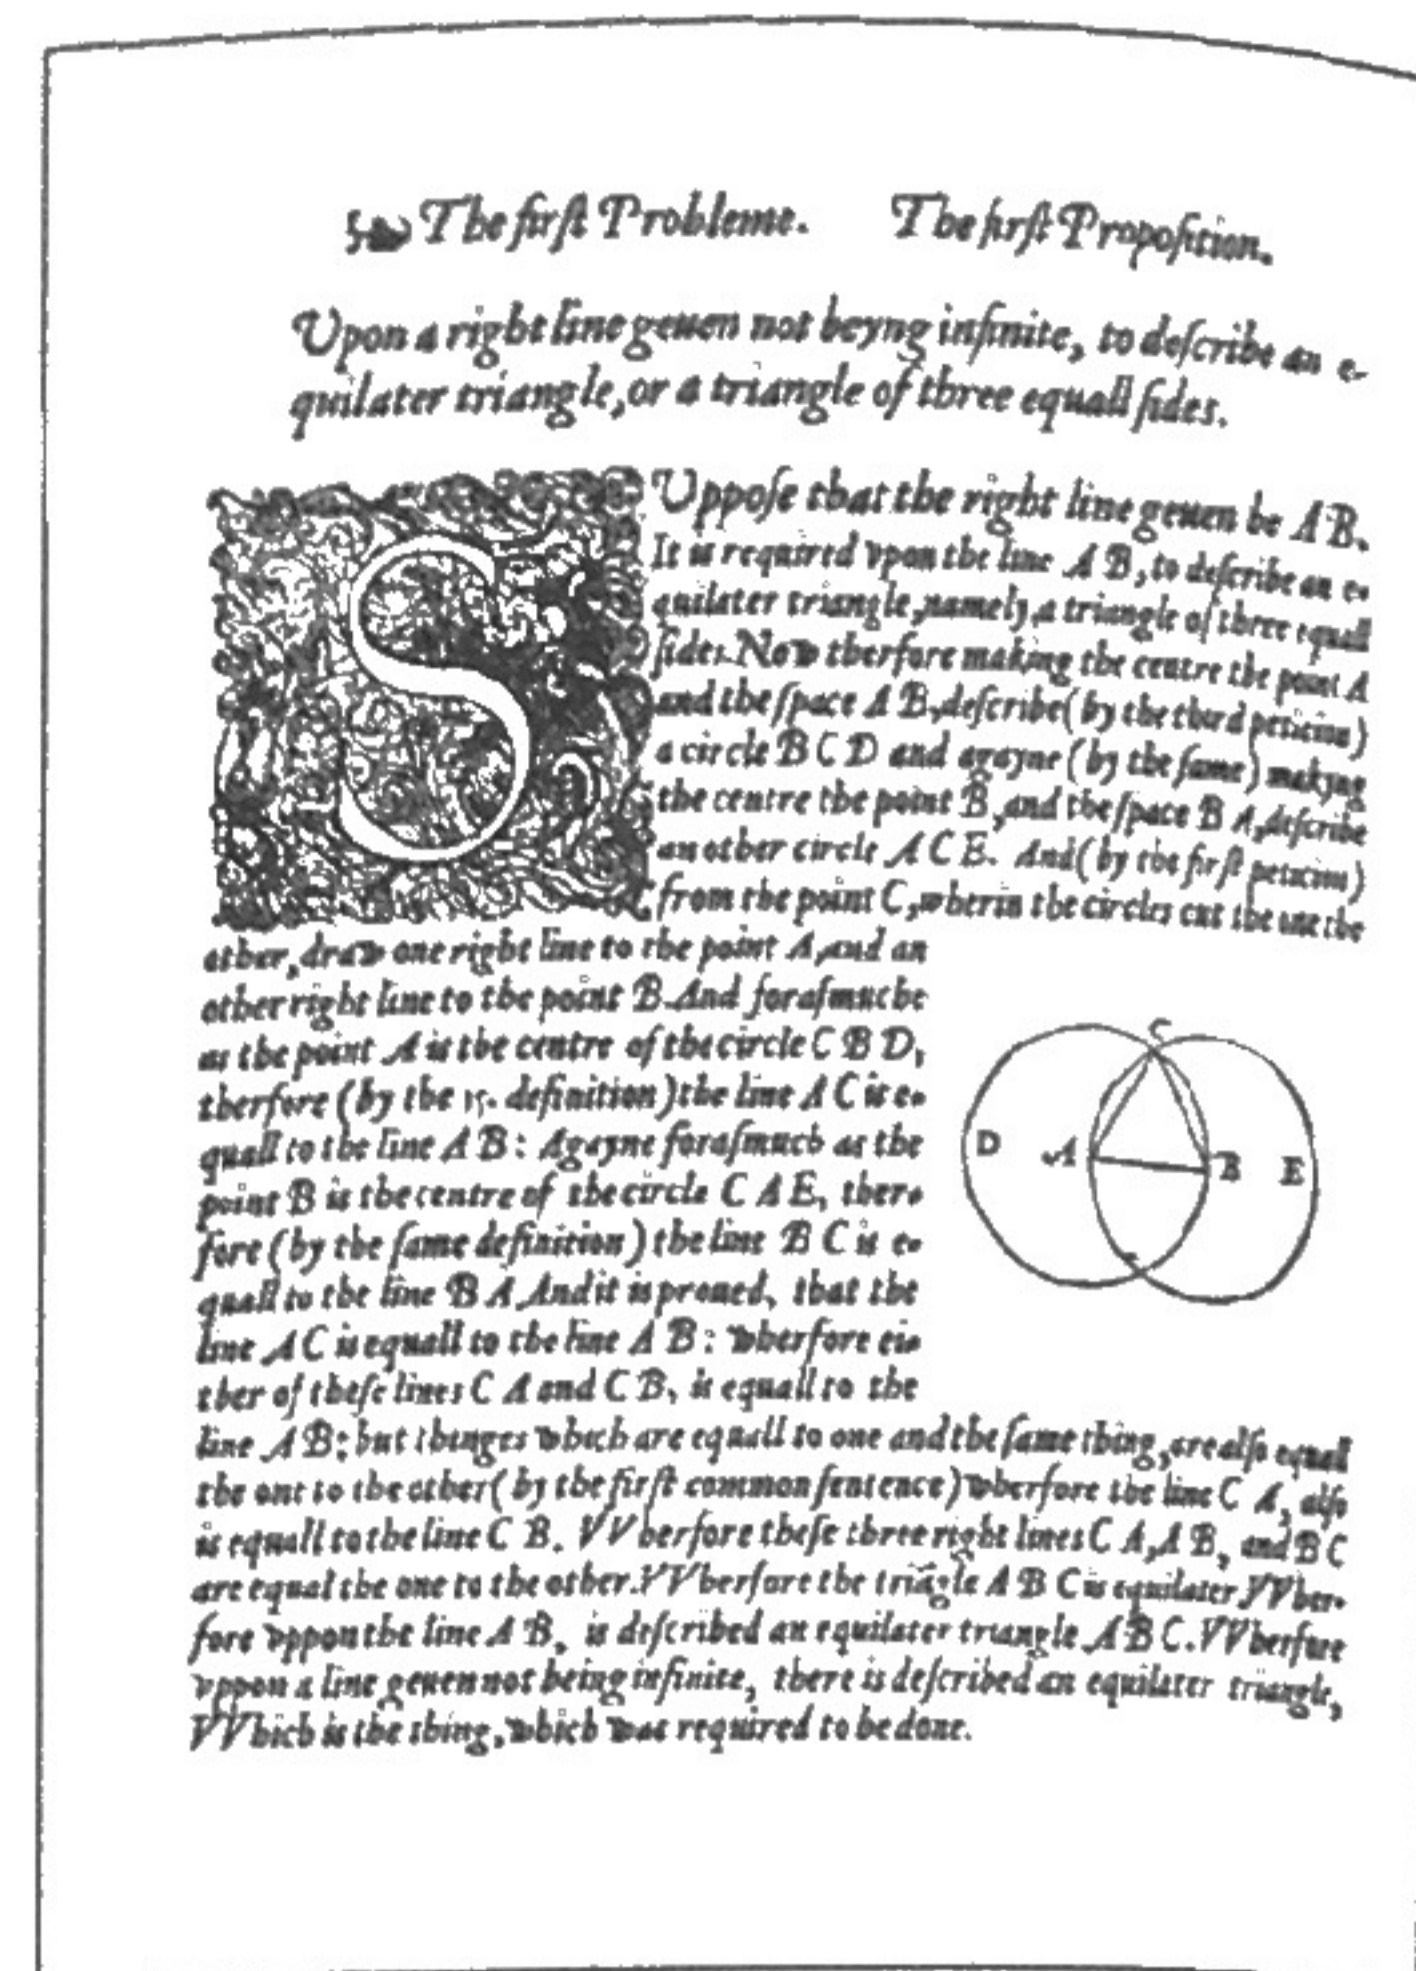 The first Probleme. The first Proposition.
Upon a right line geuen not beyng infinite, to describe an e-
quilater triangle, or a triangle of three equall sides.
SUppose that the right line geuen be A B.
It is required vpon the line A B, to describe an e-
quilater triangle, namely, a triangle of three equall
sides. Now therfore making the centre the point A
and the space A B, describe (by the third peticion)
a circle B C D and agayne (by the same) makyng
the centre the point B, and the space B A, describe
an other circle A C E. And (by the first peticion)
from the point C, wherin the circles cut the one the
other, draw one right line to the point A, and an
other right line to the point B. And forasmuche
as the point A is the centre of the circle C B D,
therfore (by the 15. definition) the line A C is e-
quall to the line A B: Agayne forasmuch as the
point B is the centre of the circle C A E, ther-
fore (by the same definition) the line B C is e-
quall to the line B A. And it is proued, that the
line A C is equall to the line A B: wherfore ei-
ther of these lines C A and C B, is equall to the
line A B: but thinges which are equall to one and the same thing, are also equall
the one to the other (by the first common sentence) wherfore the line C A, also
is equall to the line C B. VVherfore these three right lines C A, A B, and B C
are equal the one to the other. VVherfore the triãgle A B C is equilater. VVher-
fore vppon the line A B, is described an equilater triangle A B C. VVherfore
vppon a line geuen not being infinite, there is described an equilater triangle,
VVhich is the thing, which was required to be done.
C
D A B E